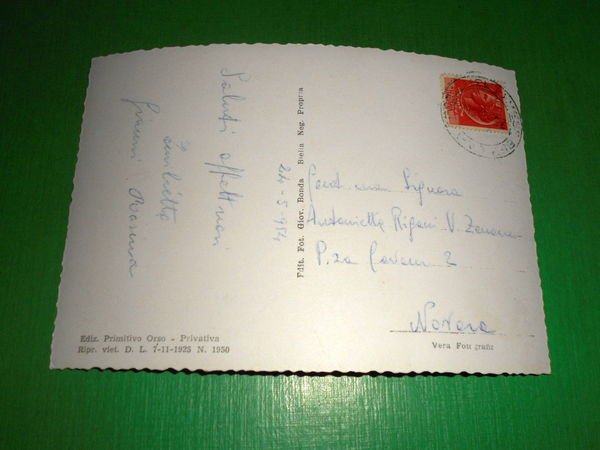 Saluti affettuosi
Giulietta
Gianni Rosanna
24-5-954
Edit. Fot. Giov. Bonda Biella Neg. Propria
Signora
Antonietta Rigani V. Zanara
P.za Cavour 2
Novara
Ediz. Primitivo Orso - Privativa
Ripr. viet. D. L. 7-11-1925 N. 1950
Vera Fotografia